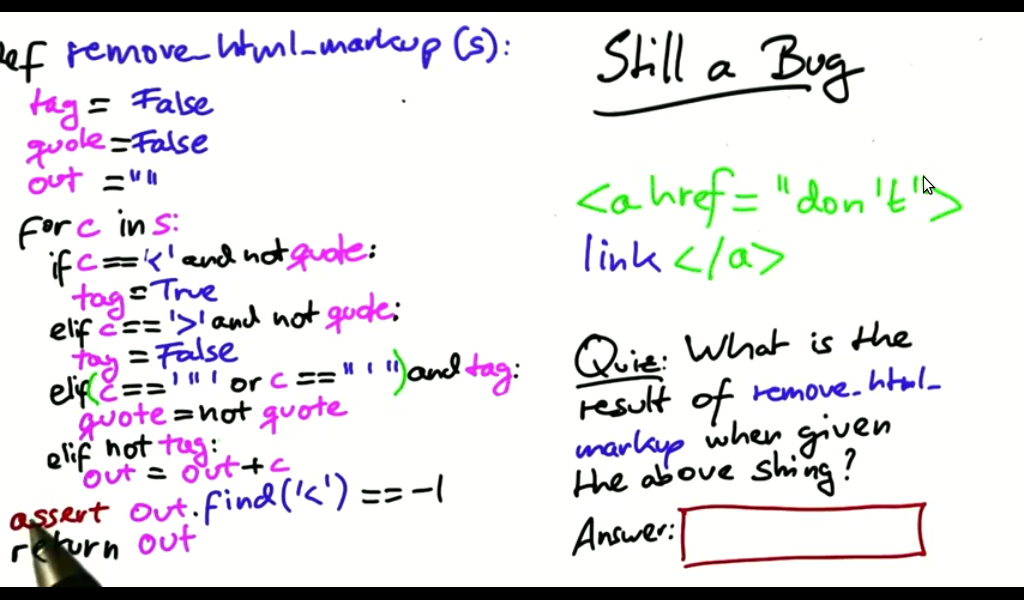 def remove_html_markup (s):
tag = False
quote = False
out = ""
for c in s:
if c == '<' and not quote:
tag = True
elif c == '>' and not quote:
tag = False
elif (c == '"' or c == "'") and tag:
quote = not quote
elif not tag:
out = out + c
assert out.find('<') == -1
return out
Still a Bug
<a href = "don't">
link </a>
Quiz: What is the
result of remove_html_
markup when given
the above string?
Answer: